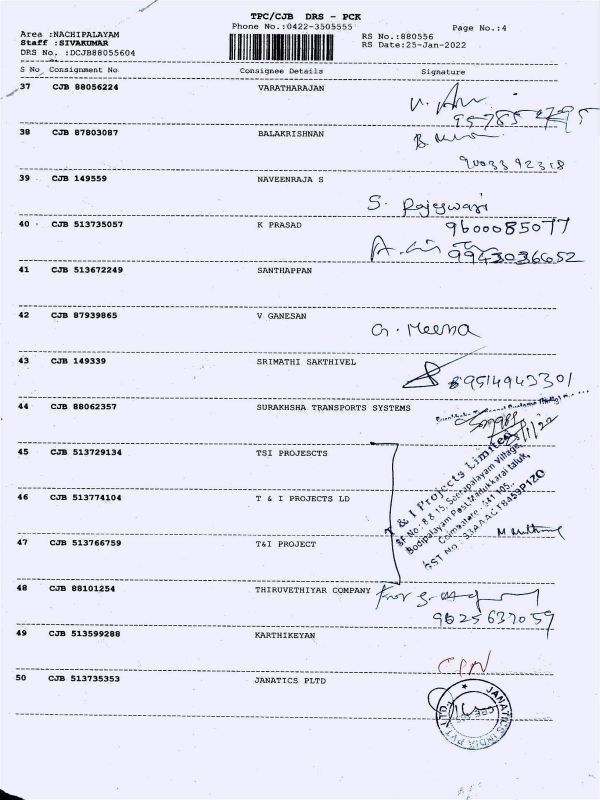 TPC/CJB DRS - PCK
Phone No.:0422-3505555
Page No.:4
Area :NACHIPALAYAM
Staff :SIVAKUMAR
DRS No. :DCJB88055604
RS No.:880556
RS Date:25-Jan-2022
S No Consignment No Consignee Details Signature
37 CJB 88056224 VARATHARAJAN
38 CJB 87803087 BALAKRISHNAN
9003392318
39 CJB 149559 NAVEENRAJA S
S. Rajeswari
40 CJB 513735057 K PRASAD 9600085077
9943036652
41 CJB 513672249 SANTHAPPAN
42 CJB 87939865 V GANESAN
G. Meena
43 CJB 149339 SRIMATHI SAKTHIVEL
89514943301
44 CJB 88062357 SURAKHSHA TRANSPORTS SYSTEMS
45 CJB 513729134 TSI PROJESCTS
46 CJB 513774104 T & I PROJECTS LD
T & I Projects Limited
SF No.: 8 & 15, Seerapalayam Village,
Bodipalayam Post, Madukkarai taluk,
Coimbatore - 641 105.
GST No.: 33AAACT8459P1ZO
47 CJB 513766759 T&I PROJECT
48 CJB 88101254 THIRUVETHIYAR COMPANY
9625637059
49 CJB 513599288 KARTHIKEYAN
50 CJB 513735353 JANATICS PLTD
JANATICS INDIA PVT LTD